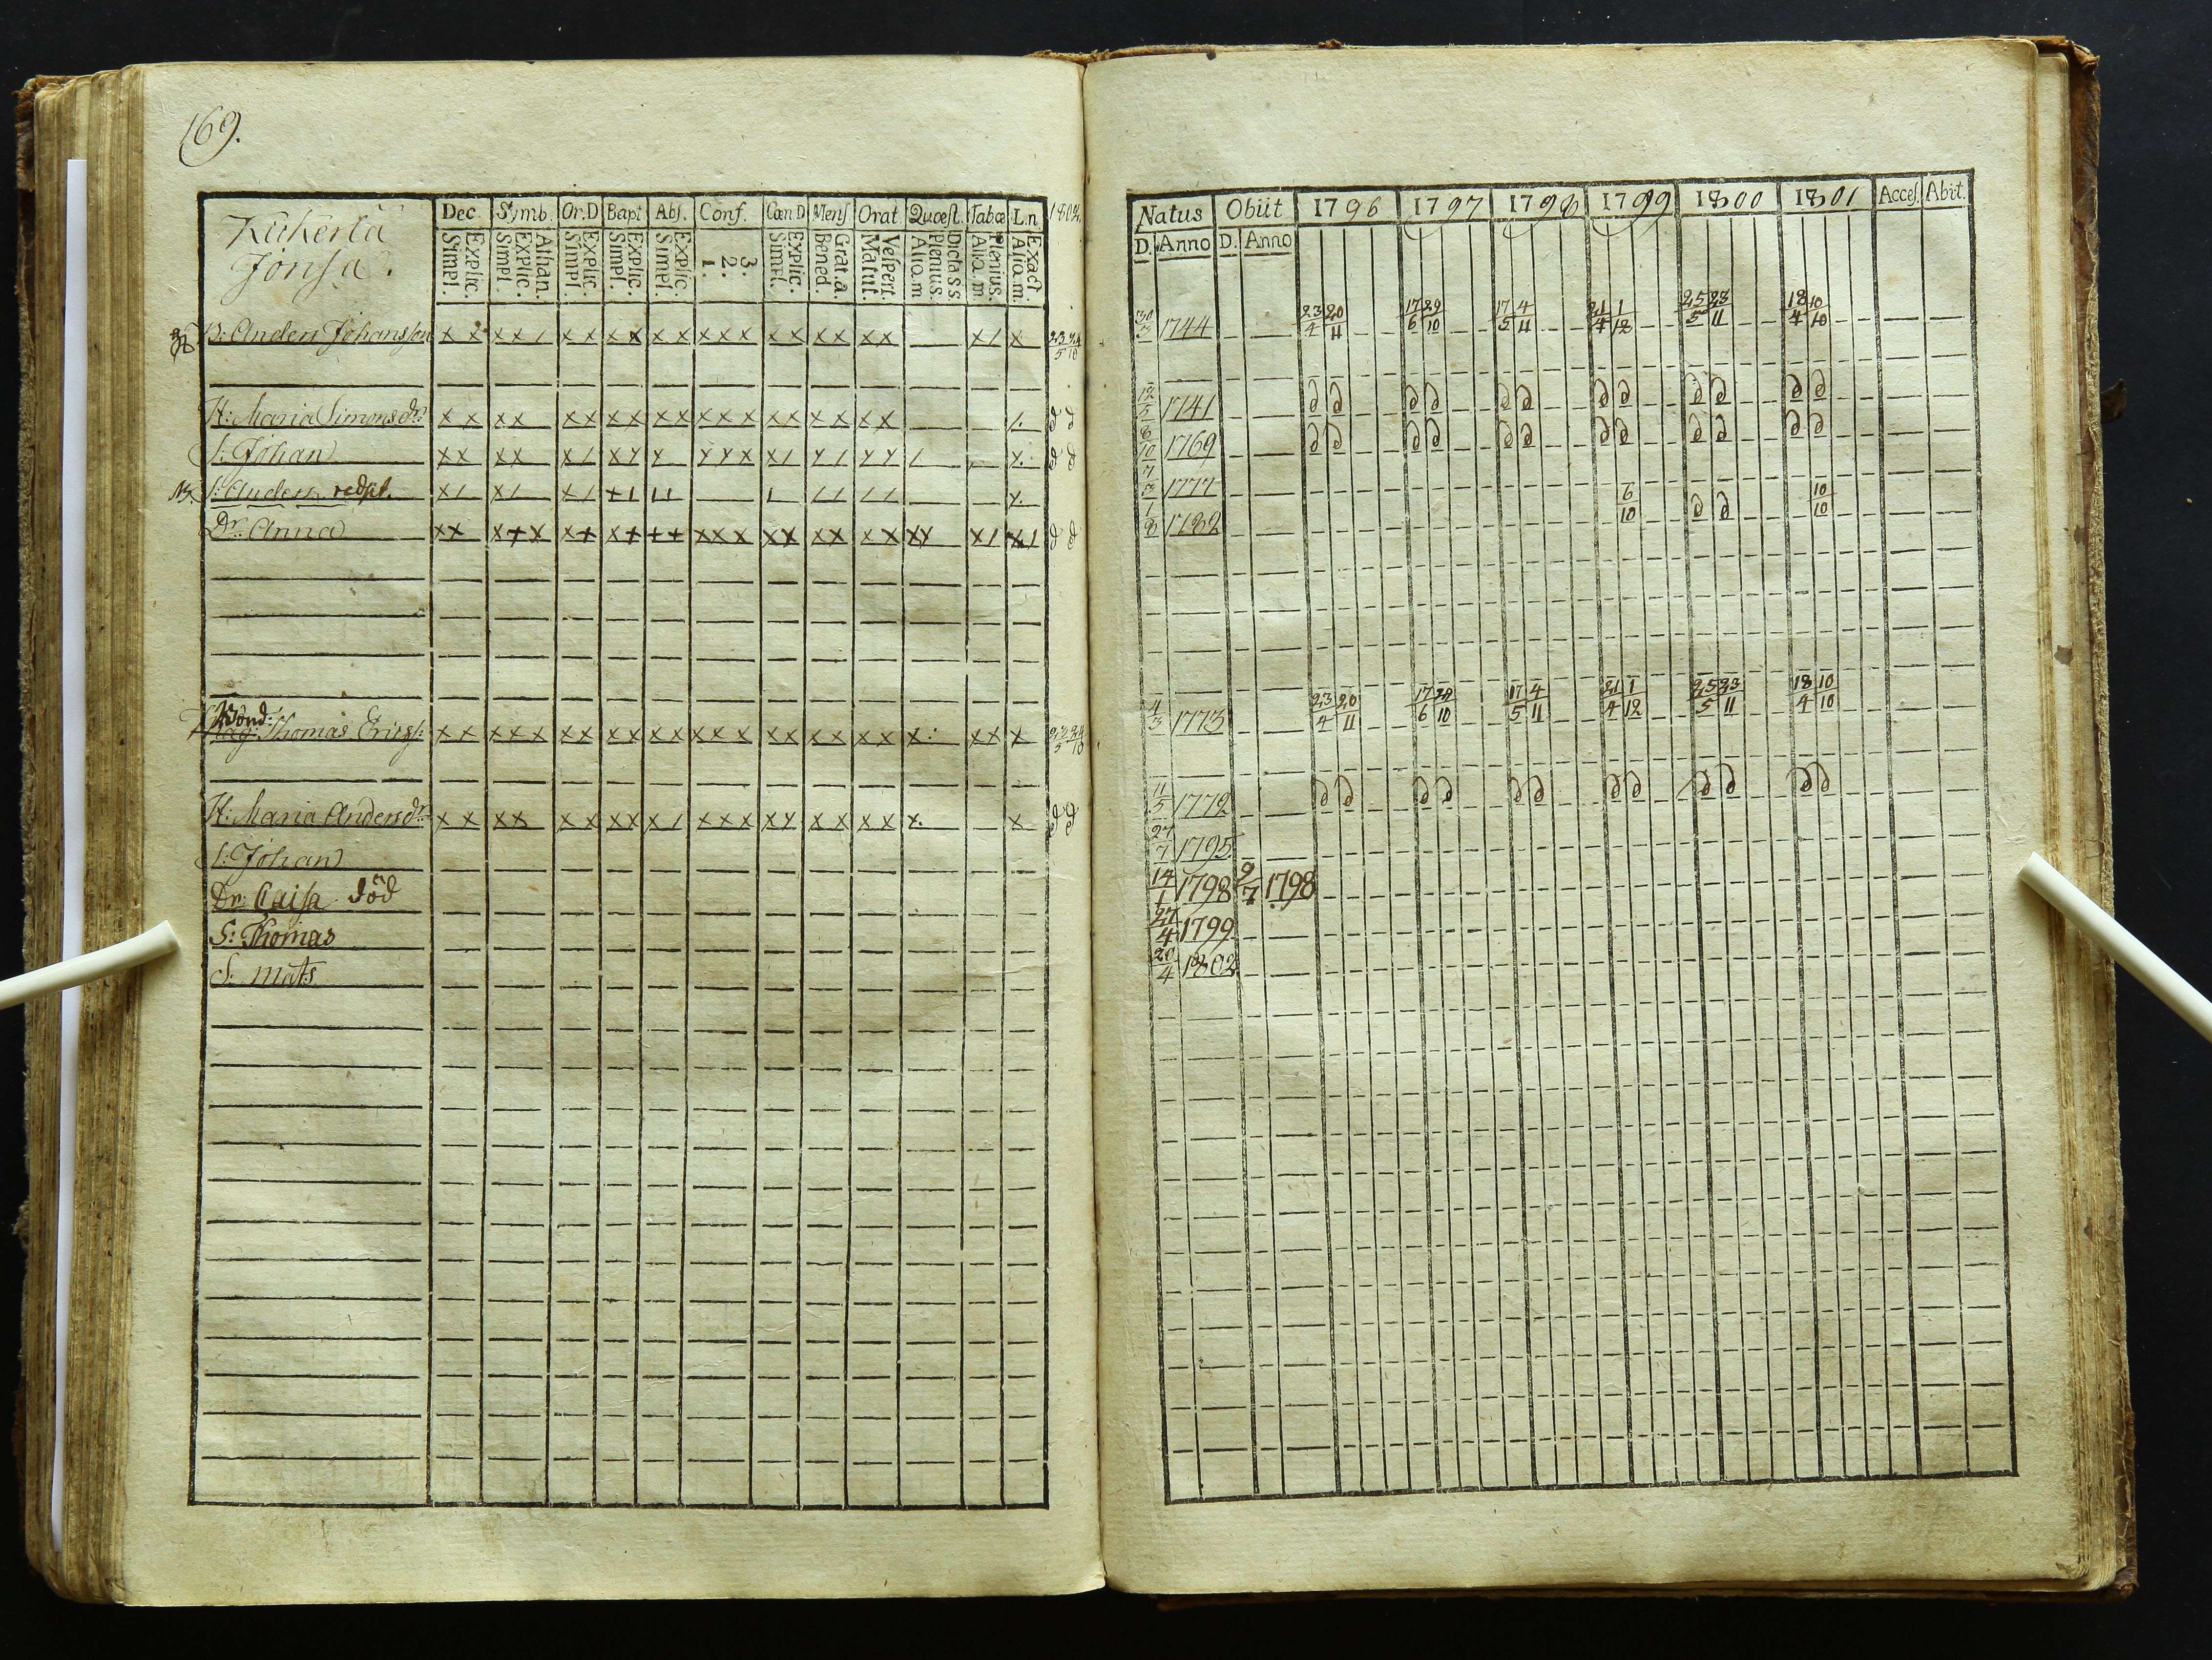 169.
Kükerlä
Jonsa.
Dec. Symb. Or.D Bapt Abs. Conf. Cœn D Mens Orat. Quæst. Tabœ L.n. 1802.
Simpl. Explic. Simpl. Explic. Athan. Simpl. Explic. Simpl. Explic. Simpl. Explic. 1. 2. 3 Simpl. Explic. Bened. Grat. a. Matut. Vespert. Aliq.m Plenius. Dicta s.s. Aliq.m. Plenius. Aliq.m. Exact.
B: Anders Johansson x x x x / x x x x x x x x x x x x x x x x / x 23 24 5 10
H: Maria Simonsdr x x x x x x x x x x x x x x x x x x x /. d d
S: Johan x x x x x / x y y y y x x / y / y y / y. d d
S: Anders x / x / x / + / / / / / / / / y.
Dr. Anna x x x + x x + x + + + x x x x x x x x x x y x / x / d d
Bond:
Thomas Ericss: x x x x x x x x x x x x x x x x x x x x x: x x x 23 24 5 10
H: Maria Andersdr x x x x x x x x x / x x x x y x x x x x. x d d
S: Johan
Dr. Caisa död
S: Thomas
S: Mats
Natus Obiit 1796 1797 1798 1799 1800 1801 Acces. Abit.
D. Anno D. Anno
30 3 1744 23 20 4 11 17 29 6 10 17 4 5 11 21 1 4 12 25 23 5 11 18 10 4 10
12 5 1741 d d d d d d d d d d d d
8 10 1769 d d d d d d d d d d d d
7 3 1777
1 8 1782 6 10 d d 10 10
4 3 1773 23 20 4 11 17 29 6 10 17 4 5 11 21 1 4 12 25 23 5 11 18 10 4 10
11 5 1772 d d d d d d d d d d d d
27 7 1795
14 1 1798 9 7 1798
27 4 1799
20 4 1802